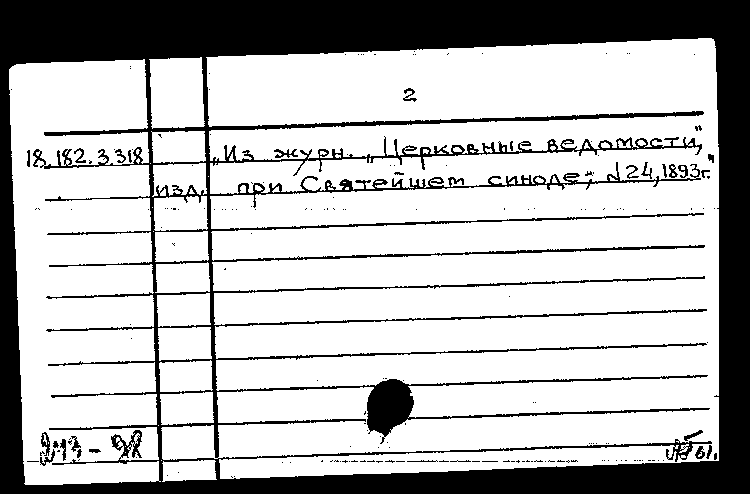 2
18.182.3.318 „Из журн. „Церковные ведомости,"
изд. при Святейшем синоде; № 24, 1893 г."